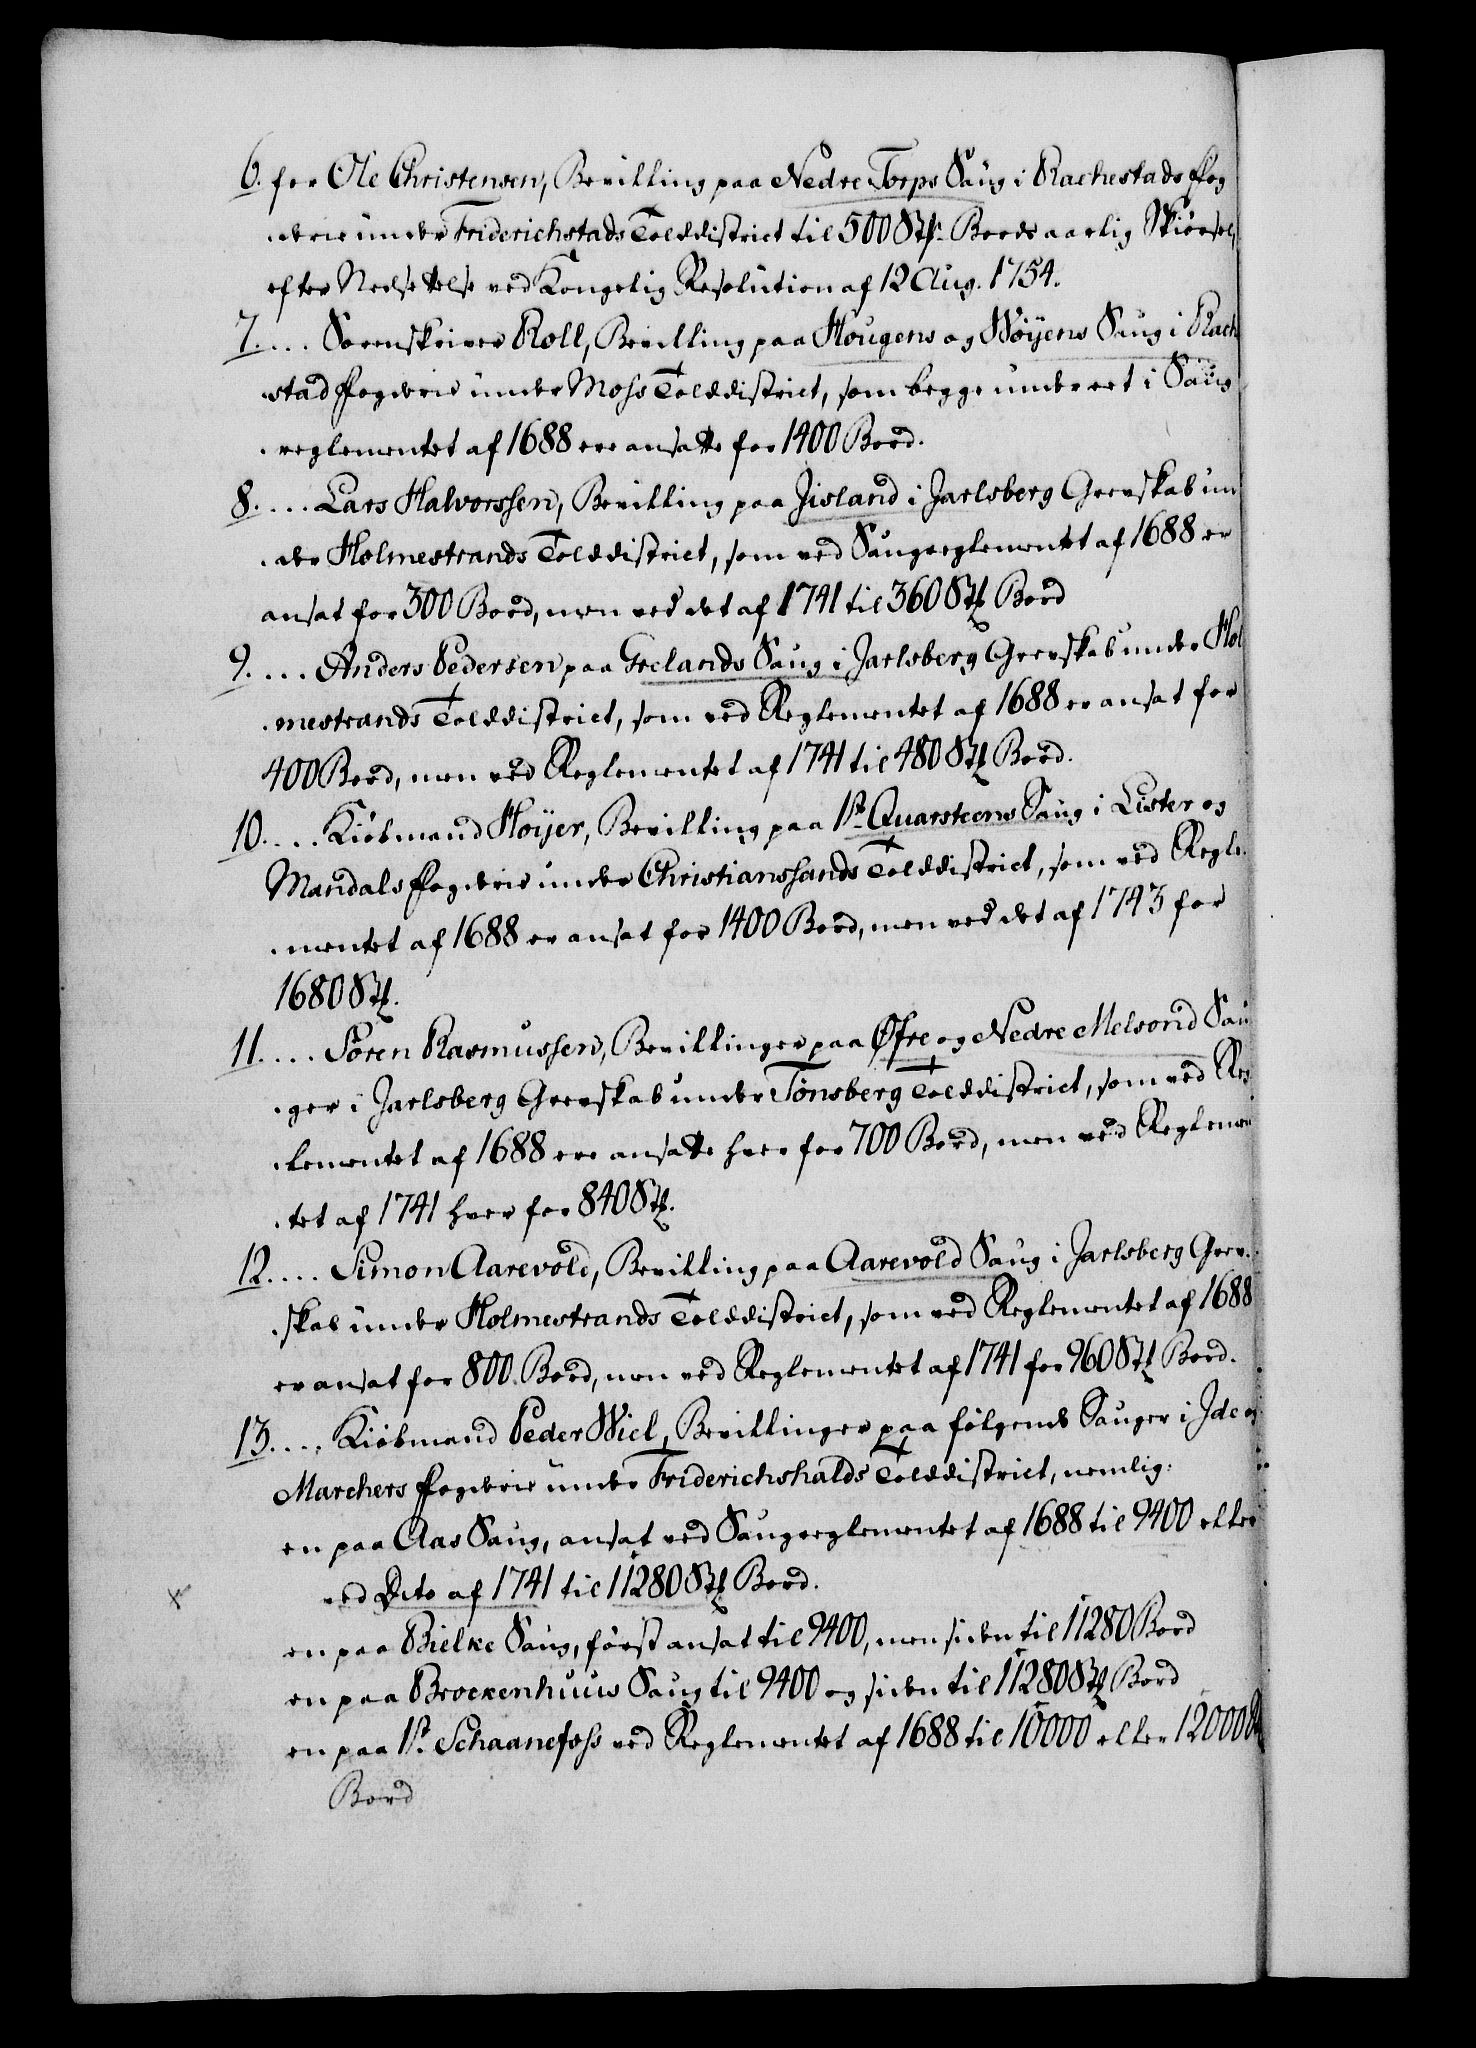 6. for Ole Christensen, Bevilling paa Nedre Torps Saug i Rachestads Fog
derie under Friderichstads Tolddistrict til 500 Stk. Bords aarlig Skiørsel,
efter Nedsettelse ved Kongelig Resolution af 12 Aug. 1754.
7. . . . Sorenskriver Roll, Bevilling paa Hougens og Wøyens Saug i Rach
stad Fogderie under Moss Tolddistrict, som begge under eet i Saug
reglementet af 1688 ere ansatte for 1400 Bord.
8. . . . Lars Halvorssen, Bevilling paa Jisland i Jarlsberg Grevskab un
der Holmestrands Tolddistrict, som ved Saugreglementet af 1688 er
ansat for 300 Bord, men ved det af 1741 til 360 Stk Bord
9. . . . Anders Pedersen paa Grelands Saug i Jarlsberg Grevskab under Hol
mestrands Tolddistrict, som ved Reglementet af 1688 er ansat for
400 Bord, men ved Reglementet af 1741 til 480 Stk Bord.
10. . . . Kiøbmand Høyer, Bevilling paa 1st Quarsteens Saug i Lister og
Mandals Fogderie under Christianssands Tolddistrict, som ved Regle
mentet af 1688 er ansat for 1400 Bord, men ved det af 1743 for
1680 Stk.
11. . . . Søren Rasmussen, Bevillinger paa Øfre og Nedre Melsond Sau
ger i Jarlsberg Grevskab under Tønsberg Tolddistrict, som ved Reg
lementet af 1688 ere ansatte hver for 700 Bord, men ved Reglemen
tet af 1741 hver for 840 Stk.
12. . . . Simon Aarevold, Bevilling paa Aarevold Saug i Jarlsberg Grev
skab under Holmestrands Tolddistrict, som ved Reglementet af 1688
er ansat for 800 Bord, men ved Reglementet af 1741 for 960 Stk Bord.
13. . . . Kiøbmand Peder Wiel, Bevillinger paa følgende Sauger i Jde og
Marchers Fogderie under Friderichshalds Tolddistrict, nemlig:
en paa Aas Saug, ansat ved Saugreglementet af 1688 til 9400 eller
ved Dito af 1741 til 11280 Stk Bord.
en paa Bielke Saug, først ansat til 9400, men siden til 11280 Bord
en paa Brockenhuus Saug til 9400 og siden til 11280 Stk Bord
en paa 1st Schaanefoss ved Reglementet af 1688 til 10000 eller 12000
Bord